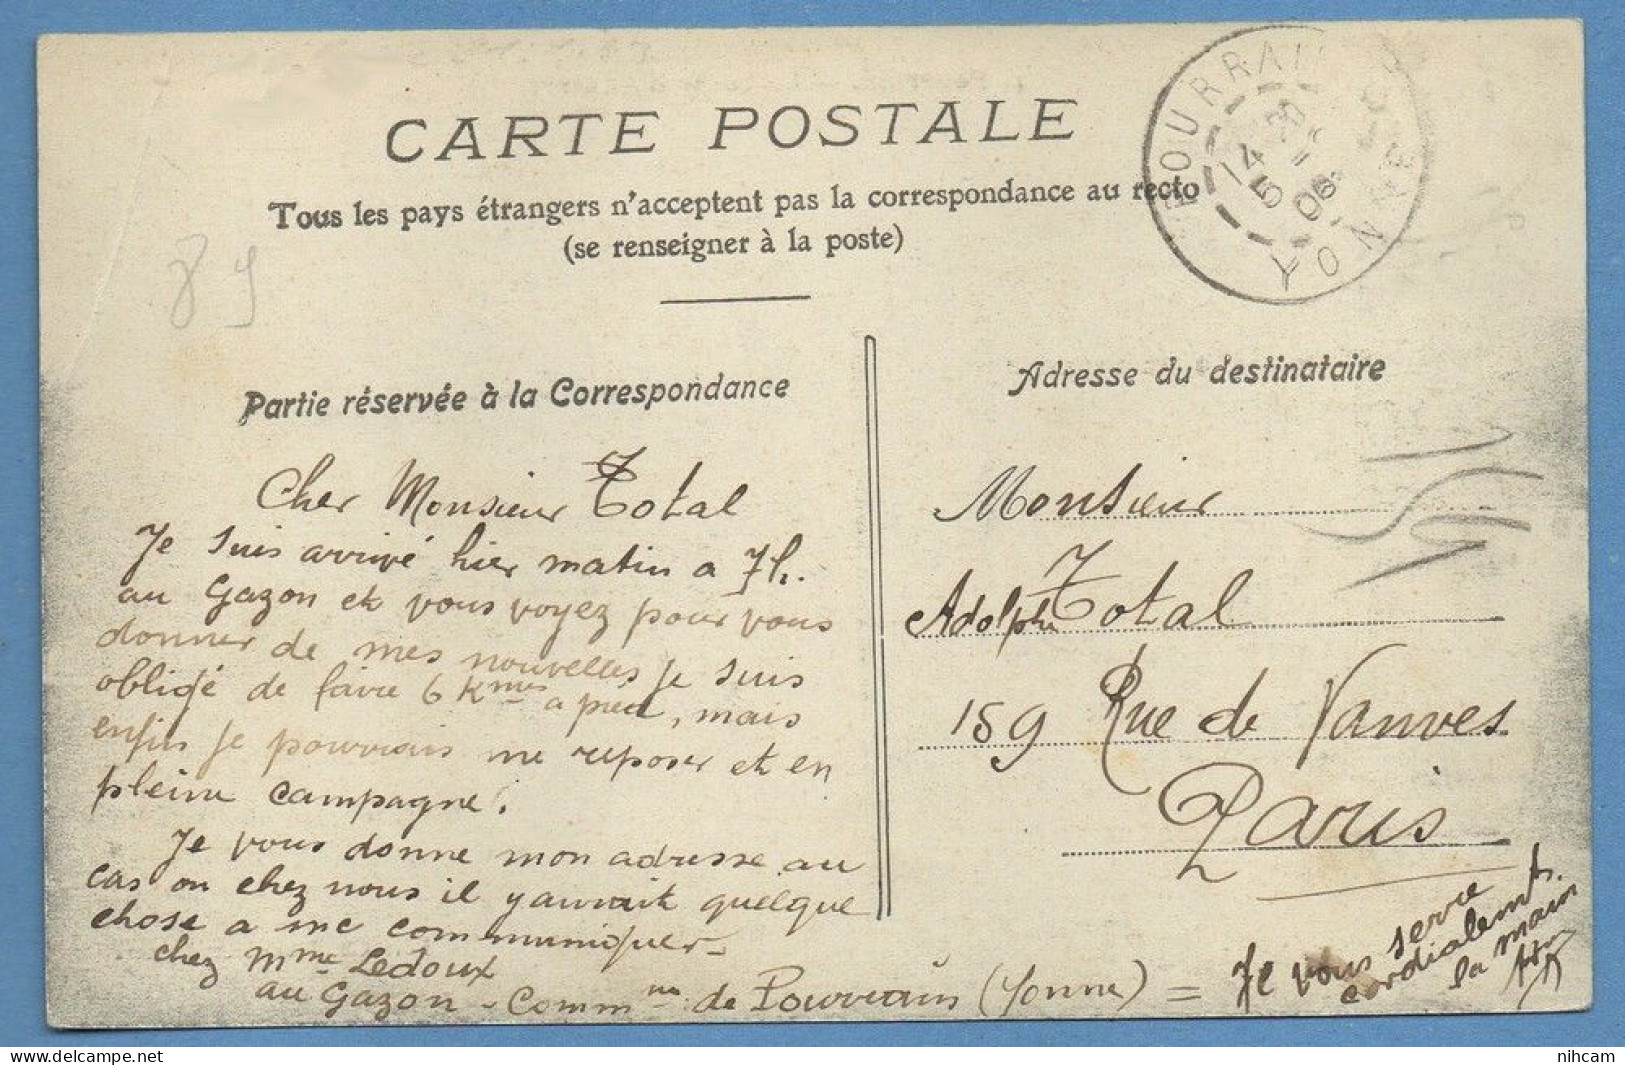 CARTE POSTALE
Tous les pays étrangers n'acceptent pas la correspondance au recto
(se renseigner à la poste)
POURRAIN
14 30
5 08
YONNE
89
Partie réservée à la Correspondance
Adresse du destinataire
Cher Monsieur Total
Je suis arrivé hier matin a 7h.
au Gazon et vous voyez pour vous
donner de mes nouvelles je suis
obligé de faire 6 Kmes a pied, mais
enfin je pourrais me reposer et en
pleine campagne.
Je vous donne mon adresse au
cas ou chez nous il y aurait quelque
chose a me communiquer
chez Mme Ledoux
au Gazon - Commne de Pourrain (Yonne) =
Je vous serre
cordialement
la main
Monsieur
Adolphe Total
159 Rue de Vanves
Paris
nihcam